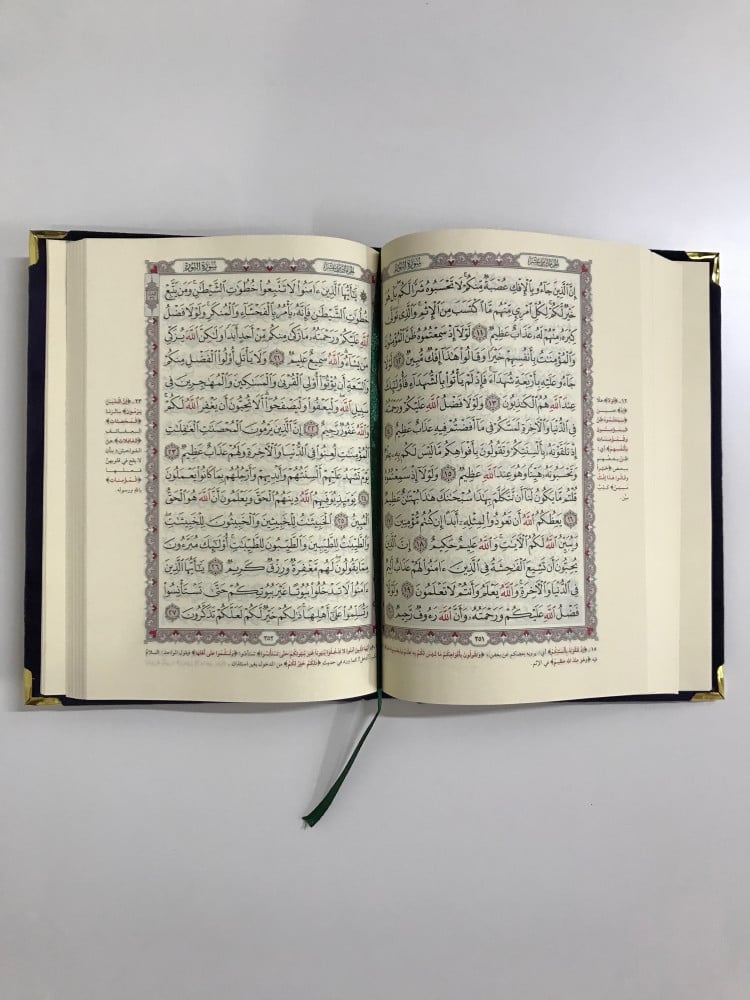 الجزء الثامن عشر سُورَةُ النُّورِ
إِنَّ الَّذِينَ جَاءُو بِالْإِفْكِ عُصْبَةٌ مِّنكُمْ لَا تَحْسَبُوهُ شَرًّا لَّكُم بَلْ هُوَ
خَيْرٌ لَّكُمْ لِكُلِّ امْرِئٍ مِّنْهُم مَّا اكْتَسَبَ مِنَ الْإِثْمِ وَالَّذِي تَوَلَّىٰ
كِبْرَهُ مِنْهُمْ لَهُ عَذَابٌ عَظِيمٌ ١١ لَّوْلَا إِذْ سَمِعْتُمُوهُ ظَنَّ الْمُؤْمِنُونَ
وَالْمُؤْمِنَٰتُ بِأَنفُسِهِمْ خَيْرًا وَقَالُوا هَٰذَا إِفْكٌ مُّبِينٌ ١٢ لَّوْلَا
جَاءُو عَلَيْهِ بِأَرْبَعَةِ شُهَدَاءَ فَإِذْ لَمْ يَأْتُوا بِالشُّهَدَاءِ فَأُولَٰئِكَ
عِندَ اللَّهِ هُمُ الْكَٰذِبُونَ ١٣ وَلَوْلَا فَضْلُ اللَّهِ عَلَيْكُمْ وَرَحْمَتُهُ
فِي الدُّنْيَا وَالْآخِرَةِ لَمَسَّكُمْ فِي مَا أَفَضْتُمْ فِيهِ عَذَابٌ عَظِيمٌ ١٤
إِذْ تَلَقَّوْنَهُ بِأَلْسِنَتِكُمْ وَتَقُولُونَ بِأَفْوَاهِكُم مَّا لَيْسَ لَكُم بِهِ عِلْمٌ
وَتَحْسَبُونَهُ هَيِّنًا وَهُوَ عِندَ اللَّهِ عَظِيمٌ ١٥ وَلَوْلَا إِذْ سَمِعْتُمُوهُ
قُلْتُم مَّا يَكُونُ لَنَا أَن نَّتَكَلَّمَ بِهَٰذَا سُبْحَٰنَكَ هَٰذَا بُهْتَٰنٌ عَظِيمٌ
١٦ يَعِظُكُمُ اللَّهُ أَن تَعُودُوا لِمِثْلِهِ أَبَدًا إِن كُنتُم مُّؤْمِنِينَ ١٧
وَيُبَيِّنُ اللَّهُ لَكُمُ الْآيَٰتِ وَاللَّهُ عَلِيمٌ حَكِيمٌ ١٨ إِنَّ الَّذِينَ
يُحِبُّونَ أَن تَشِيعَ الْفَٰحِشَةُ فِي الَّذِينَ ءَامَنُوا لَهُمْ عَذَابٌ أَلِيمٌ
فِي الدُّنْيَا وَالْآخِرَةِ وَاللَّهُ يَعْلَمُ وَأَنتُمْ لَا تَعْلَمُونَ ١٩ وَلَوْلَا
فَضْلُ اللَّهِ عَلَيْكُمْ وَرَحْمَتُهُ وَأَنَّ اللَّهَ رَءُوفٌ رَّحِيمٌ ٢٠
٣٥١
الجزء الثامن عشر سُورَةُ النُّورِ
يَٰأَيُّهَا الَّذِينَ ءَامَنُوا لَا تَتَّبِعُوا خُطُوَٰتِ الشَّيْطَٰنِ وَمَن يَتَّبِعْ
خُطُوَٰتِ الشَّيْطَٰنِ فَإِنَّهُ يَأْمُرُ بِالْفَحْشَاءِ وَالْمُنكَرِ وَلَوْلَا فَضْلُ
اللَّهِ عَلَيْكُمْ وَرَحْمَتُهُ مَا زَكَىٰ مِنكُم مِّنْ أَحَدٍ أَبَدًا وَلَٰكِنَّ اللَّهَ يُزَكِّي
مَن يَشَاءُ وَاللَّهُ سَمِيعٌ عَلِيمٌ ٢١ وَلَا يَأْتَلِ أُولُوا الْفَضْلِ مِنكُمْ
وَالسَّعَةِ أَن يُؤْتُوا أُولِي الْقُرْبَىٰ وَالْمَسَٰكِينَ وَالْمُهَٰجِرِينَ فِي
سَبِيلِ اللَّهِ وَلْيَعْفُوا وَلْيَصْفَحُوا أَلَا تُحِبُّونَ أَن يَغْفِرَ اللَّهُ لَكُمْ
وَاللَّهُ غَفُورٌ رَّحِيمٌ ٢٢ إِنَّ الَّذِينَ يَرْمُونَ الْمُحْصَنَٰتِ الْغَٰفِلَٰتِ
الْمُؤْمِنَٰتِ لُعِنُوا فِي الدُّنْيَا وَالْآخِرَةِ وَلَهُمْ عَذَابٌ عَظِيمٌ ٢٣
يَوْمَ تَشْهَدُ عَلَيْهِمْ أَلْسِنَتُهُمْ وَأَيْدِيهِمْ وَأَرْجُلُهُم بِمَا كَانُوا يَعْمَلُونَ
٢٤ يَوْمَئِذٍ يُوَفِّيهِمُ اللَّهُ دِينَهُمُ الْحَقَّ وَيَعْلَمُونَ أَنَّ اللَّهَ هُوَ الْحَقُّ
الْمُبِينُ ٢٥ الْخَبِيثَٰتُ لِلْخَبِيثِينَ وَالْخَبِيثُونَ لِلْخَبِيثَٰتِ
وَالطَّيِّبَٰتُ لِلطَّيِّبِينَ وَالطَّيِّبُونَ لِلطَّيِّبَٰتِ أُولَٰئِكَ مُبَرَّءُونَ
مِمَّا يَقُولُونَ لَهُم مَّغْفِرَةٌ وَرِزْقٌ كَرِيمٌ ٢٦ يَٰأَيُّهَا الَّذِينَ
ءَامَنُوا لَا تَدْخُلُوا بُيُوتًا غَيْرَ بُيُوتِكُمْ حَتَّىٰ تَسْتَأْنِسُوا
وَتُسَلِّمُوا عَلَىٰ أَهْلِهَا ذَٰلِكُمْ خَيْرٌ لَّكُمْ لَعَلَّكُمْ تَذَكَّرُونَ ٢٧
٣٥٢